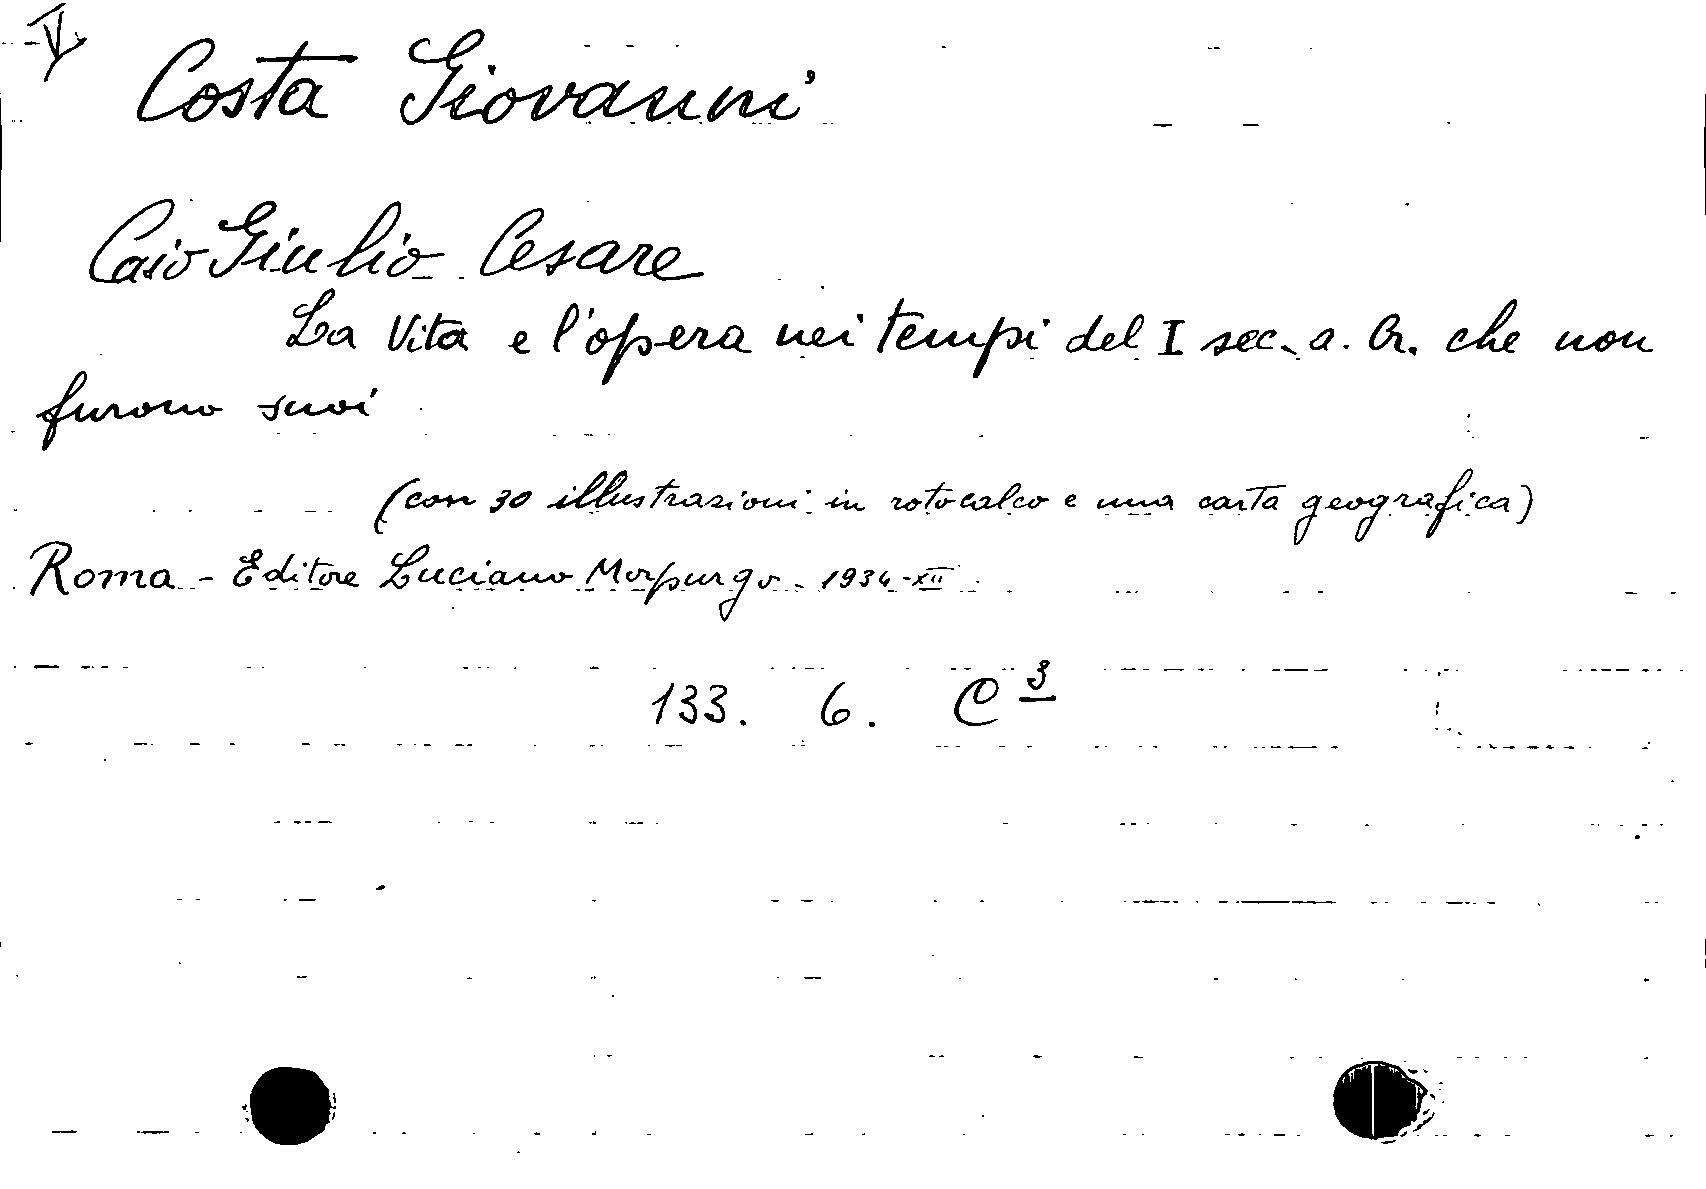 Costa Giovanni
Caio Giulio Cesare
La Vita e l'opera nei tempi del I sec. a. Cr. che non
furono suoi
(con 30 illustrazioni in rotocalco e una carta geografica)
Roma - Editore Luciano Morpurgo - 1934-XII
133. 6. C 3